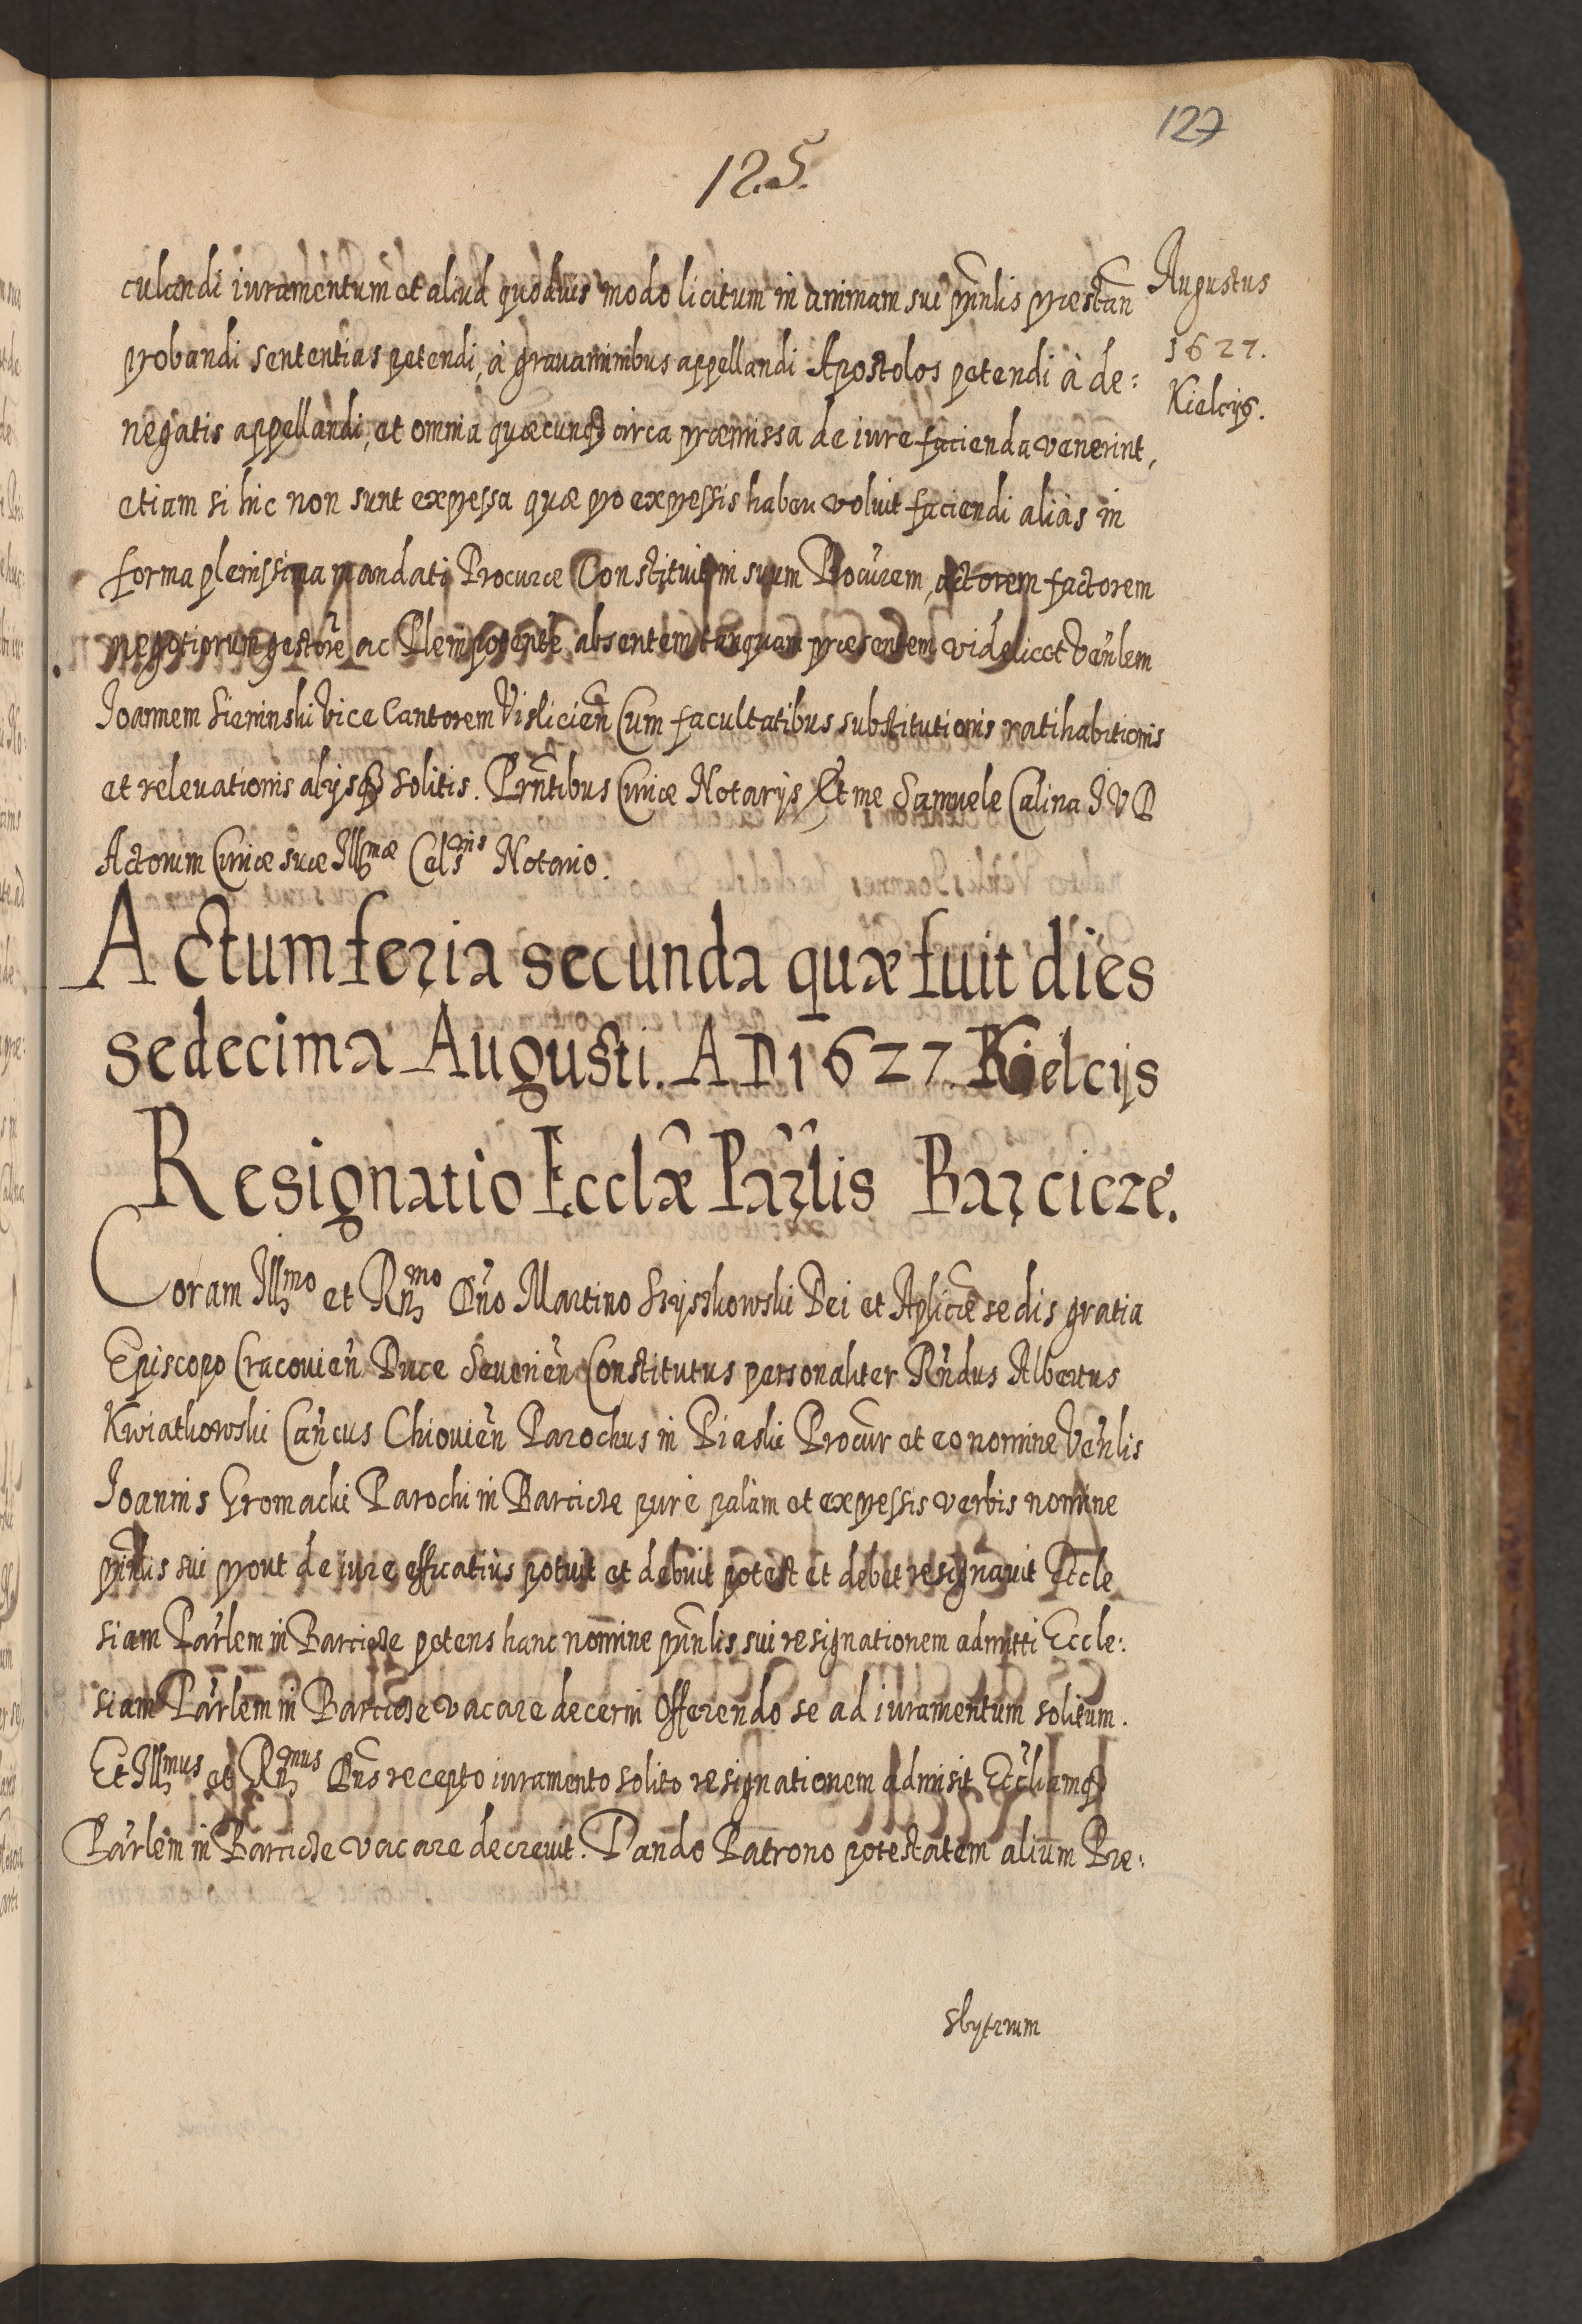 127
12.5.
Augustus
1627.
Kielcijs.
culandi iuramentum et aliud quoduis modo licitum in animam sui prinlis præstan
probandi sententias petendi, à grauaminibus appellandi Apostolos petendi à de:
negatis appellandi, et omnia quæcunq circa præmissa de iure facienda venerint,
etiam si hic non sunt expressa quæ pro expressis haberi voluit faciendi aliàs in
forma plenissima mandati Procuræ Constituit in suum Procurem, actorem factorem
negotiorum gestore ac Plenipotente absentem tanquam præsentem videlicet Venlem
Joannem Sieninski Vice Cantorem Vislicien Cum facultatibus substitutionis ratihabitionis
et releuationis alijsq solitis. Prntibus Curiæ Notarijs Et me Samuele Calina J V D
Actorum Curiæ suæ Illmæ Celsnis Notario.
Actum feria secunda quæ fuit dies
sedecima Augusti. A D 1627. Kielcijs
Resignatio Ecclæ Parlis Barcicze.
Coram Illmo et Rmo Dno Martino Szyszkowski Dei et Aplicæ sedis gratia
Episcopo Cracouien Duce Seuerien Constitutus personaliter Rndus Albertus
Kwiatkowski Cancus Chiouien Parochus in Piaski Procur et eo nomine Venlis
Joannis Gromacki Parochi in Barcicze purè palàm et expressis verbis nomine
prinlis sui prout de iure efficatiùs potuit et debuit potest et debet resignauit Eccle
siam Parlem in Barcicze petens hanc nomine prinlis sui resignationem admitti Eccle:
siam Parlem in Barcicze vacare decerni Offerendo se ad iuramentum solitum.
Et Illmus et Rmus Dns recepto iuramento solito resignationem admisit Eccliamq
Parlem in Barcicze vacare decreuit. Dando Patrono potestatem alium Præ:
sbytrum